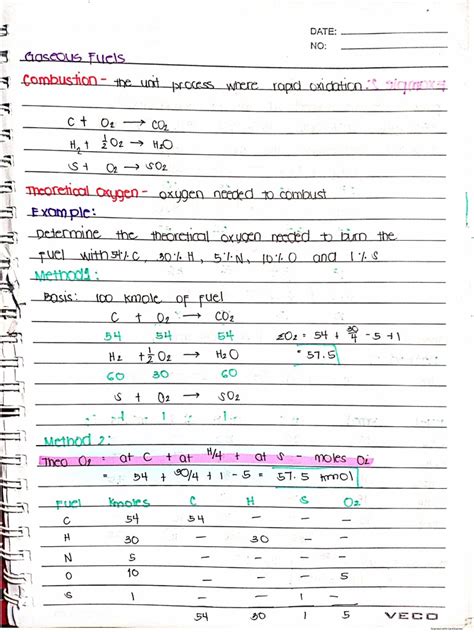 DATE:
NO:
Gaseous Fuels
Combustion - the unit process where rapid oxidation
C + O2 → CO2
H2 + 1/2 O2 → H2O
S + O2 → SO2
Theoretical Oxygen - oxygen needed to combust
Example:
Determine the theoretical oxygen needed to burn the
fuel with 54% C, 30% H, 5% N, 10% O and 1% S
Method 1:
Basis: 100 kmole of fuel
C + O2 → CO2
54 54 54 ΣO2 = 54 + 30/4 - 5 + 1
H2 + 1/2 O2 → H2O = 57.5
60 30 60
S + O2 → SO2
1 1 1
Method 2:
Theo O2 = at C + at H/4 + at S - moles O2
= 54 + 30/4 + 1 - 5 = 57.5 kmol
Fuel Kmoles C H S O2
C 54 54 - - -
H 30 - 30 - -
N 5 - - - -
O 10 - - - 5
S 1 - - 1 -
54 30 1 5 VECO